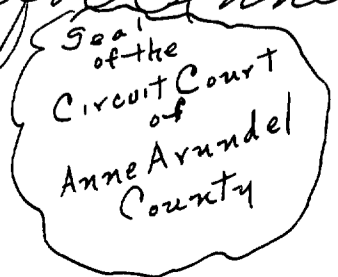 Seal
of the
Circuit Court
of
Anne Arundel
County